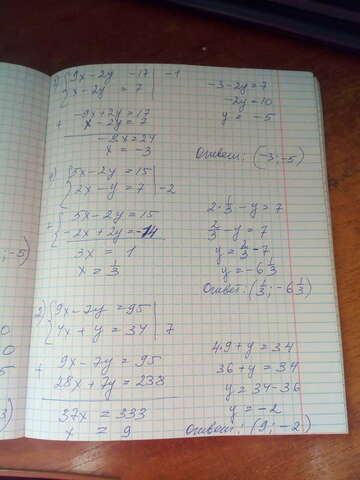 {9x-2y -17 | -1
{x-2y = 7
+ -9x+2y=17
x-2y=7
-8x=24
x = -3
-3-2y=7
-2y=10
y = -5
Ответ: (-3;-5)
{5x-2y=15
{2x-y=7 | -2
{5x-2y=15
{-2x+2y=-14
3x = 1
x = 1/3
2·1/3-y=7
2/3-y=7
y=2/3-7
y=-6 1/3
Ответ: (1/3;-6 1/3)
{9x-7y=95
{4x+y=34 | 7
+ 9x-7y=95
28x+7y=238
37x=333
x = 9
4·9+y=34
36+y=34
y=34-36
y=-2
Ответ: (9;-2)